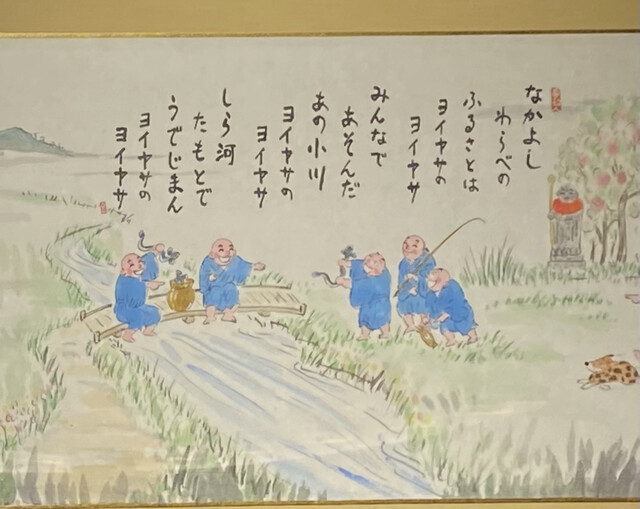 なかよし
わらべの
ふるさとは
ヨイヤサの
ヨイヤサ
みんなで
あそんだ
あの小川
ヨイヤサの
ヨイヤサ
しら河
たもとで
うでじまん
ヨイヤサの
ヨイヤサ